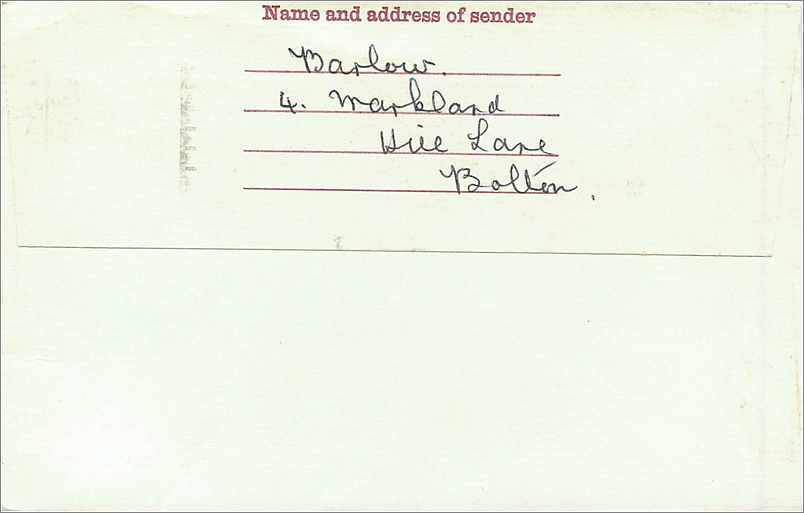 Name and address of sender
Barlow.
4. Markland
Hill Lane
Bolton.